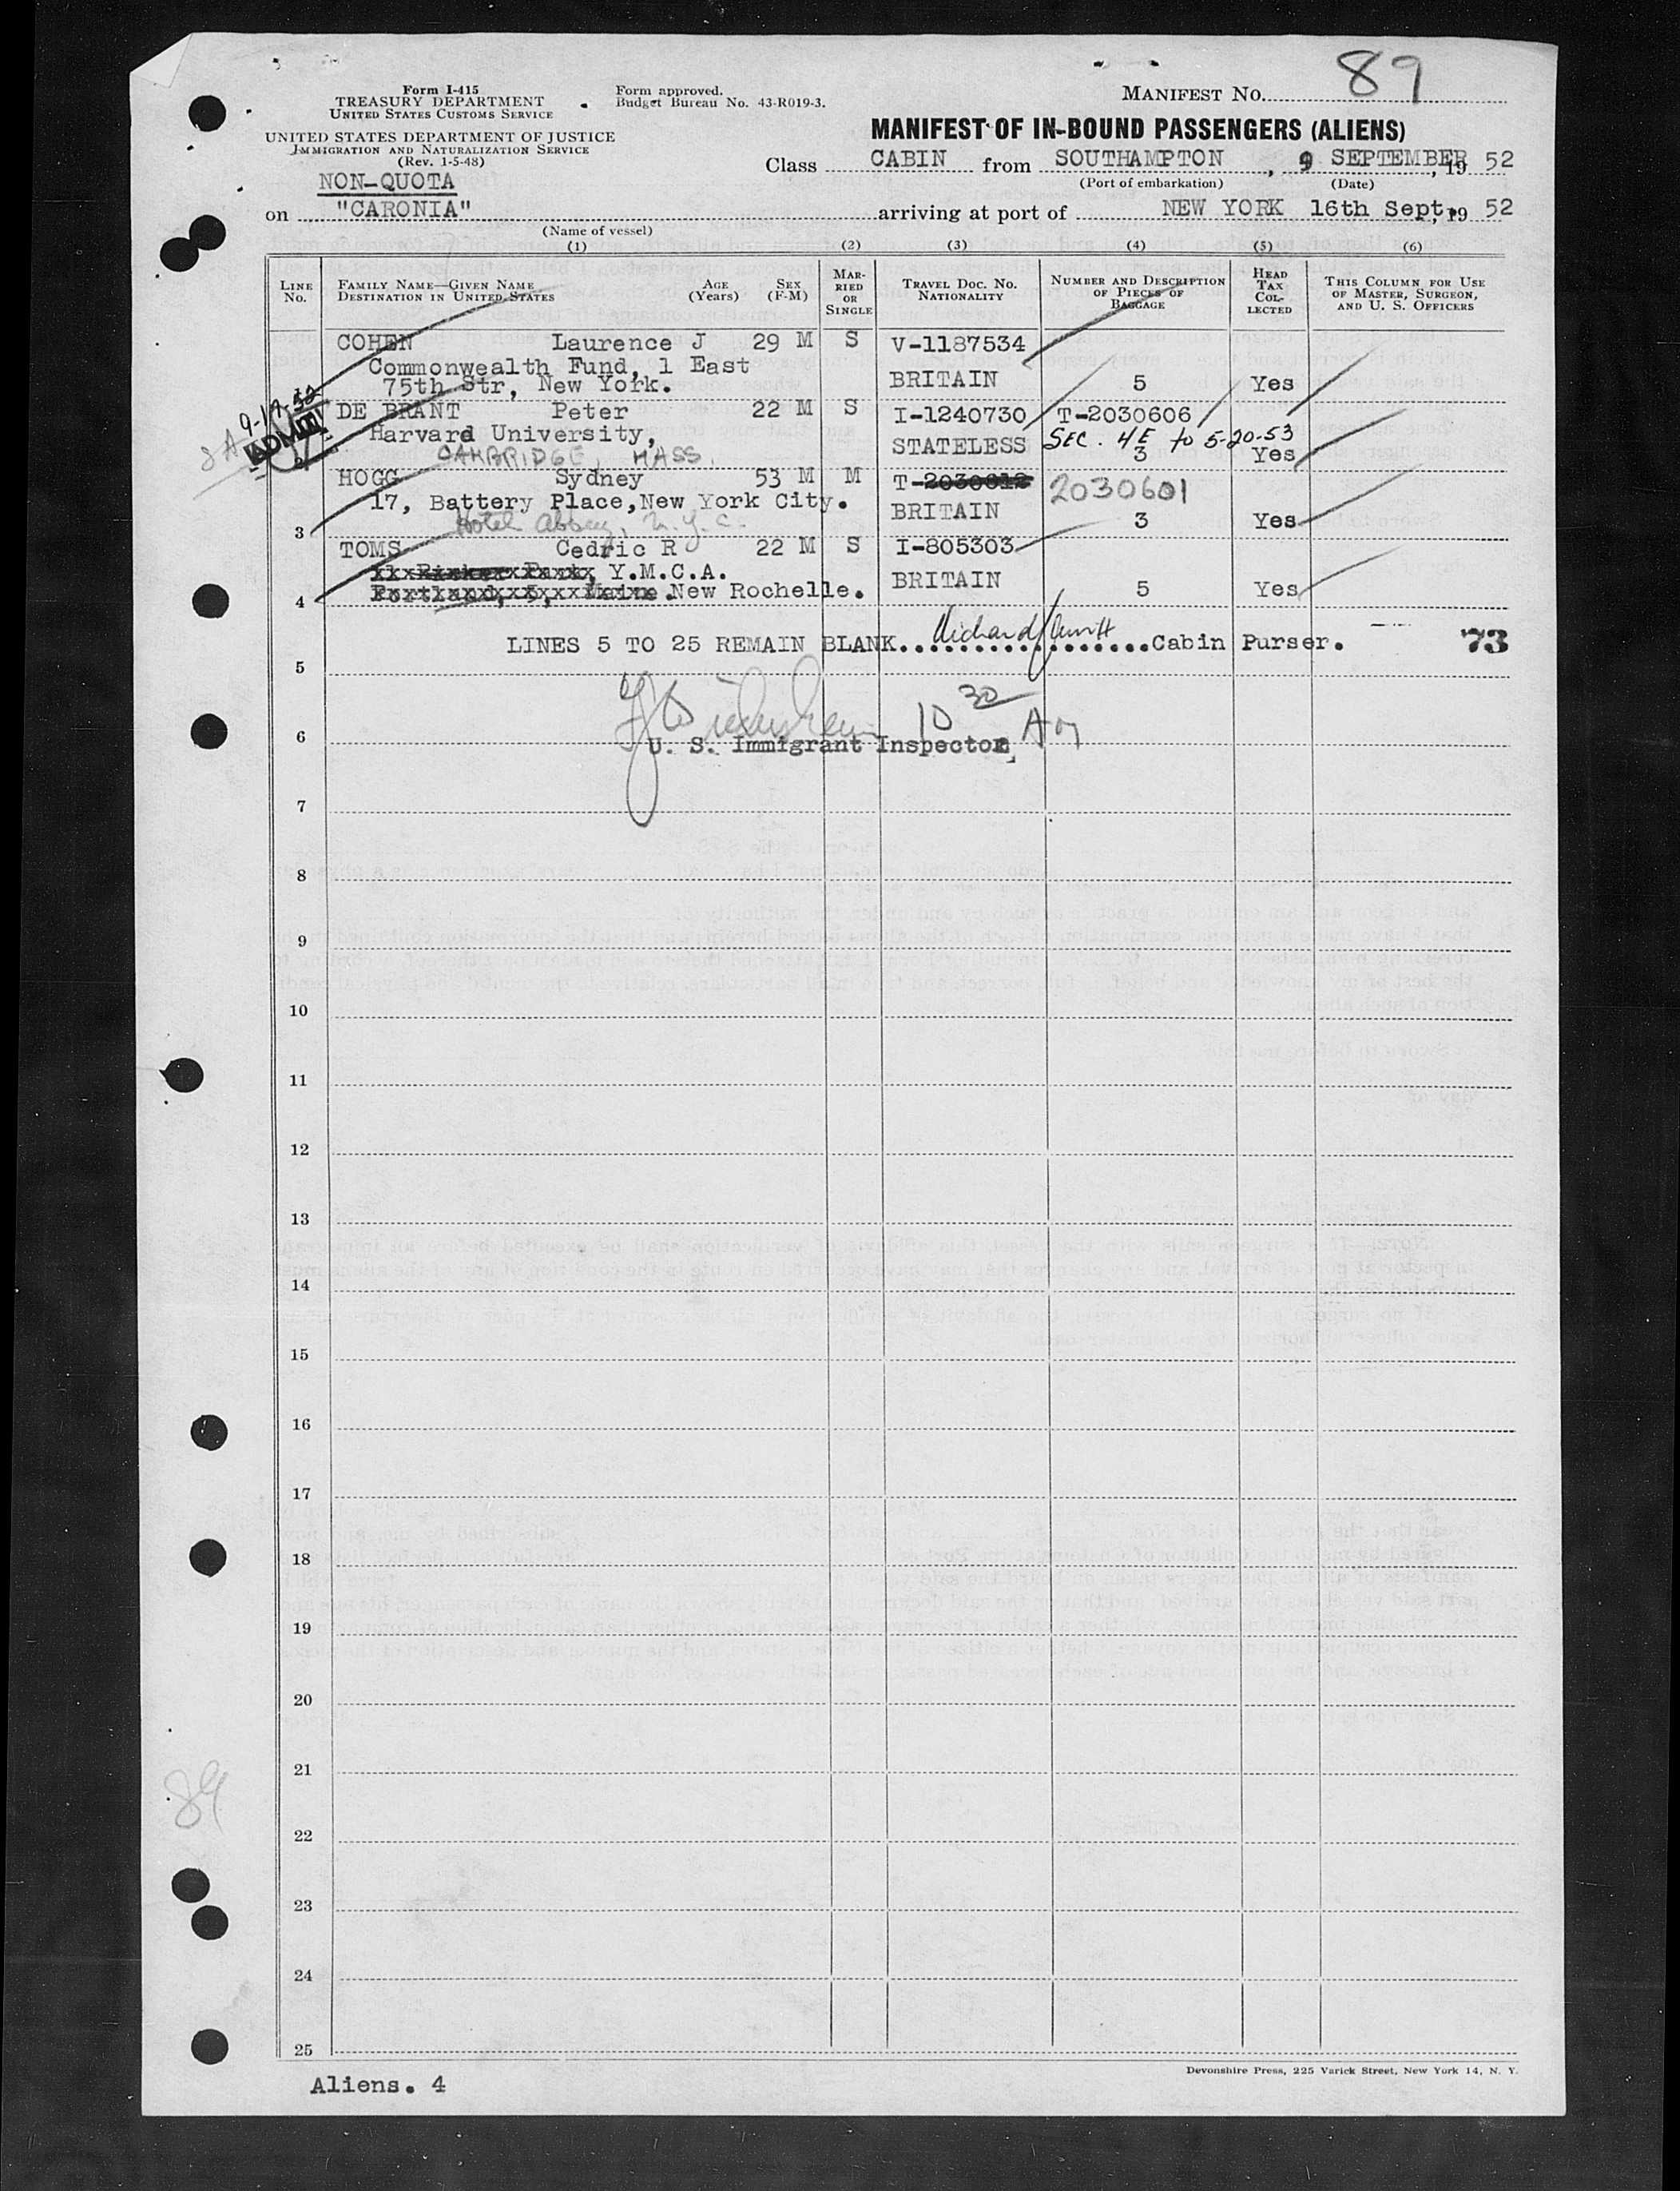 89
Form I-415
TREASURY DEPARTMENT
UNITED STATES CUSTOMS SERVICE
UNITED STATES DEPARTMENT OF JUSTICE
IMMIGRATION AND NATURALIZATION SERVICE
(Rev. 1-5-48)
Form approved.
Budget Bureau No. 43-R019-3.
MANIFEST NO.
MANIFEST OF IN-BOUND PASSENGERS (ALIENS)
Class CABIN from SOUTHAMPTON, 9 SEPTEMBER, 19 52
(Port of embarkation) (Date)
NON-QUOTA
on "CARONIA" arriving at port of NEW YORK 16th Sept, 19 52
(Name of vessel)
(1) (2) (3) (4) (5) (6)
LINE No.
FAMILY NAME—GIVEN NAME
DESTINATION IN UNITED STATES
AGE (Years)
SEX (F-M)
MARRIED OR SINGLE
TRAVEL DOC. NO. NATIONALITY
NUMBER AND DESCRIPTION OF PIECES OF BAGGAGE
HEAD TAX COLLECTED
THIS COLUMN FOR USE OF MASTER, SURGEON, AND U. S. OFFICERS
COHEN Laurence J 29 M S V-1187534
Commonwealth Fund, 1 East
75th Str, New York. BRITAIN 5 Yes
9-19-52
ADMITT
DE BRANT Peter 22 M S I-1240730 T-2030606
Harvard University, STATELESS SEC. 4E to 5-20-53
CAMBRIDGE, MASS. 3 Yes
HOGG Sydney 53 M M T-2030612 2030601
17, Battery Place, New York City. BRITAIN
Hotel Abbey, N.Y.C. 3 Yes
3
TOMS Cedric R 22 M S I-805303
Y.M.C.A. BRITAIN
4 New Rochelle. 5 Yes
LINES 5 TO 25 REMAIN BLANK..................Cabin Purser. 73
5
10 30 AM
6 U. S. Immigrant Inspector
7
8
9
10
11
12
13
14
15
16
17
18
19
20
21
89
22
23
24
25
Devonshire Press, 225 Varick Street, New York 14, N. Y.
Aliens. 4